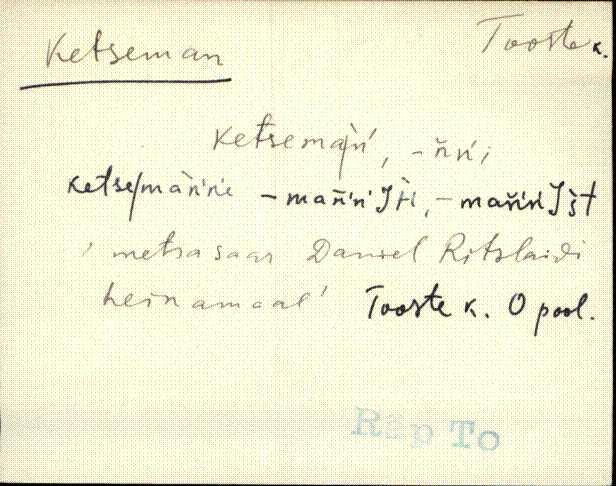 Ketseman
Tooste k.
ketsemàn', -ňńi
ketse/màn'n'e -mańn'Iťi, -mańńIšt
' metsasaar Daniel Ritslaidi
heinamaal' Tooste k. O pool.
Räp To